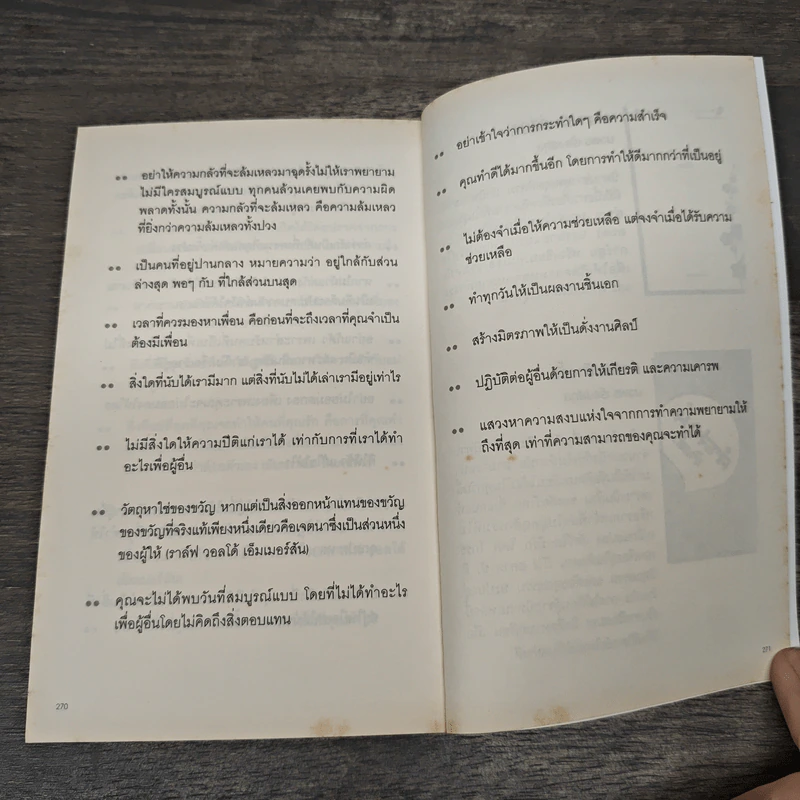 •• อย่าให้ความกลัวที่จะล้มเหลวมาฉุดรั้งไม่ให้เราพยายาม
ไม่มีใครสมบูรณ์แบบ ทุกคนล้วนเคยพบกับความผิด
พลาดทั้งนั้น ความกลัวที่จะล้มเหลว คือความล้มเหลว
ที่ยิ่งกว่าความล้มเหลวทั้งปวง
•• เป็นคนที่อยู่ปานกลาง หมายความว่า อยู่ใกล้กับส่วน
ล่างสุด พอๆ กับ ที่ใกล้ส่วนบนสุด
•• เวลาที่ควรมองหาเพื่อน คือก่อนที่จะถึงเวลาที่คุณจำเป็น
ต้องมีเพื่อน
•• สิ่งใดที่นับได้เรามีมาก แต่สิ่งที่นับไม่ได้เล่าเรามีอยู่เท่าไร
•• ไม่มีสิ่งใดให้ความปีติแก่เราได้ เท่ากับการที่เราได้ทำ
อะไรเพื่อผู้อื่น
•• วัตถุหาใช่ของขวัญ หากแต่เป็นสิ่งออกหน้าแทนของขวัญ
ของขวัญที่จริงแท้เพียงหนึ่งเดียวคือเจตนาซึ่งเป็นส่วนหนึ่ง
ของผู้ให้ (ราล์ฟ วอลโด้ เอ็มเมอร์สัน)
•• คุณจะไม่ได้พบวันที่สมบูรณ์แบบ โดยที่ไม่ได้ทำอะไร
เพื่อผู้อื่นโดยไม่คิดถึงสิ่งตอบแทน
270
•• อย่าเข้าใจว่าการกระทำใดๆ คือความสำเร็จ
•• คุณทำดีได้มากขึ้นอีก โดยการทำให้ดีมากกว่าที่เป็นอยู่
•• ไม่ต้องจำเมื่อให้ความช่วยเหลือ แต่จงจำเมื่อได้รับความ
ช่วยเหลือ
•• ทำทุกวันให้เป็นผลงานชิ้นเอก
•• สร้างมิตรภาพให้เป็นดั่งงานศิลป์
•• ปฏิบัติต่อผู้อื่นด้วยการให้เกียรติ และความเคารพ
•• แสวงหาความสงบแห่งใจจากการทำความพยายามให้
ถึงที่สุด เท่าที่ความสามารถของคุณจะทำได้
271